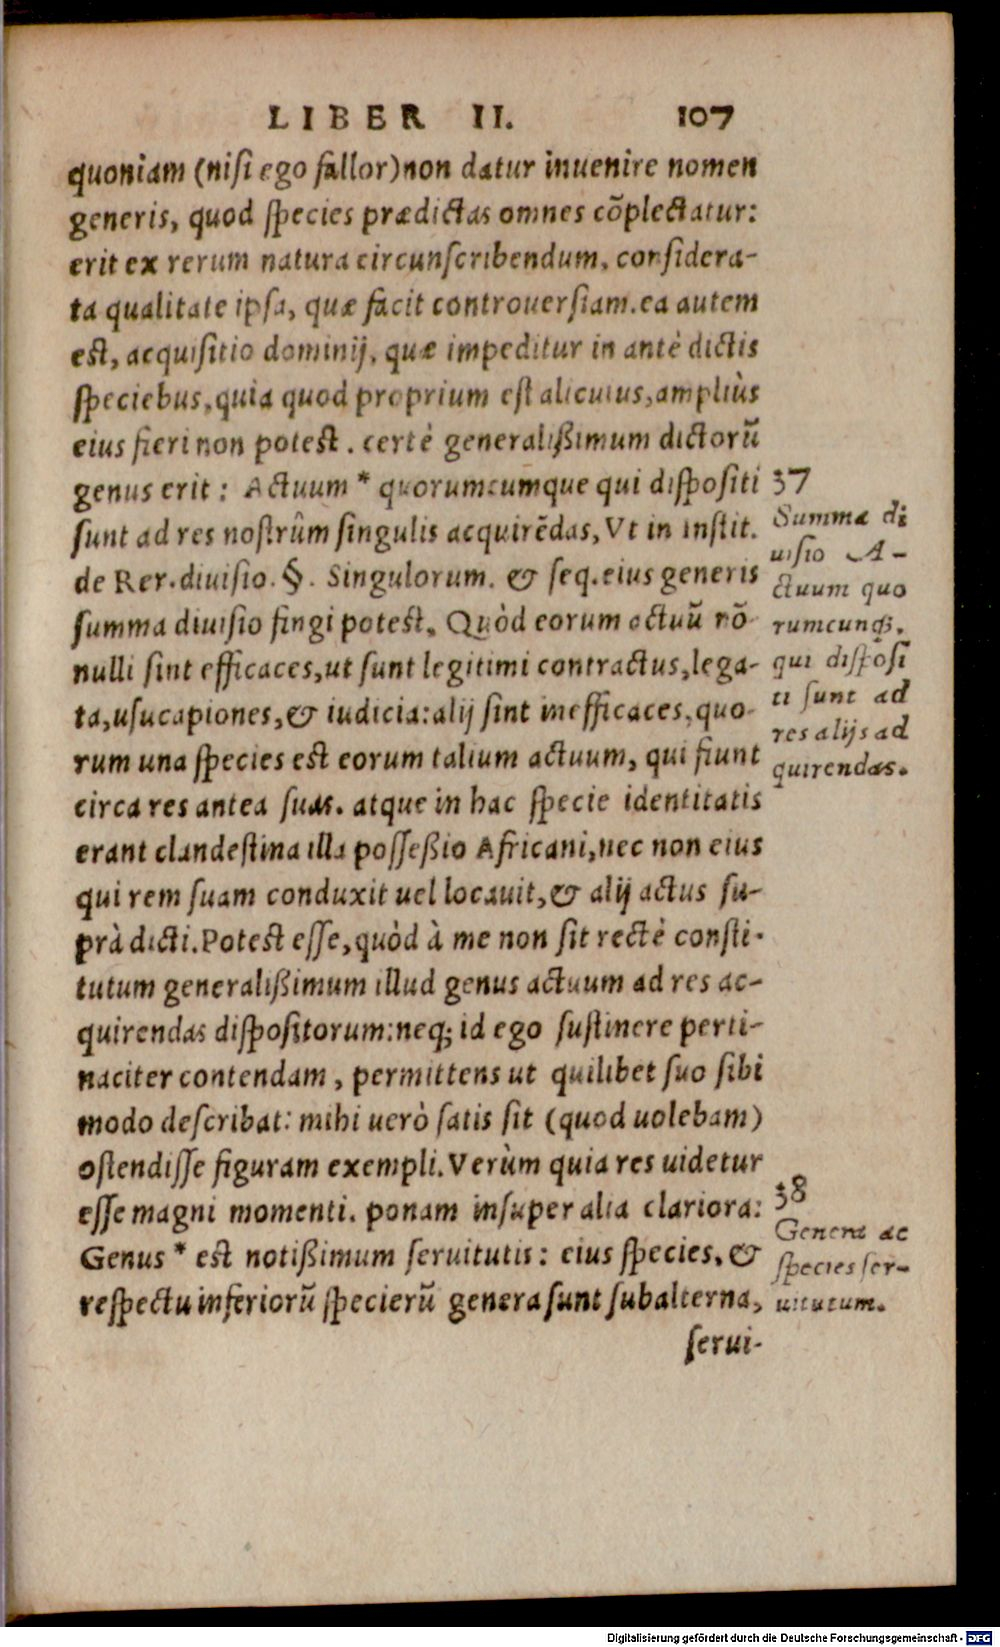 LIBER II. 107
quoniam (nisi ego fallor) non datur inuenire nomen
generis, quod species prædictas omnes cõplectatur:
erit ex rerum natura circunscribendum, considera-
ta qualitate ipsa, quæ facit controuersiam. ea autem
est, acquisitio dominij, quæ impeditur in antè dictis
speciebus, quia quod proprium est alicuius, ampliùs
eius fieri non potest. certè generalißimum dictorũ
genus erit: Actuum * quorumcumque qui dispositi
sunt ad res nostrûm singulis acquirẽdas, Vt in Instit.
de Rer. diuisio. §. Singulorum. & seq. eius generis
summa diuisio fingi potest. Quòd eorum actuũ nõ-
nulli sint efficaces, ut sunt legitimi contractus, lega-
ta, usucapiones, & iudicia: alij sint inefficaces, quo-
rum una species est eorum talium actuum, qui fiunt
circa res antea suas. atque in hac specie identitatis
erant clandestina illa posseßio Africani, nec non eius
qui rem suam conduxit uel locauit, & alij actus su-
prà dicti. Potest esse, quòd à me non sit rectè consti-
tutum generalißimum illud genus actuum ad res ac-
quirendas dispositorum: neq; id ego sustinere perti-
naciter contendam, permittens ut quilibet suo sibi
modo describat: mihi uerò satis sit (quod uolebam)
ostendisse figuram exempli. Verùm quia res uidetur
esse magni momenti. ponam insuper alia clariora:
Genus * est notißimum seruitutis: eius species, &
respectu inferiorũ specierũ genera sunt subalterna,
serui-
37
Summa di
uisio A-
ctuum quo
rumcunq;,
qui disposi
ti sunt ad
res alijs ad
quirendas.
38
Genera ac
species ser-
uitutum.
Digitalisierung gefördert durch die Deutsche Forschungsgemeinschaft - DFG